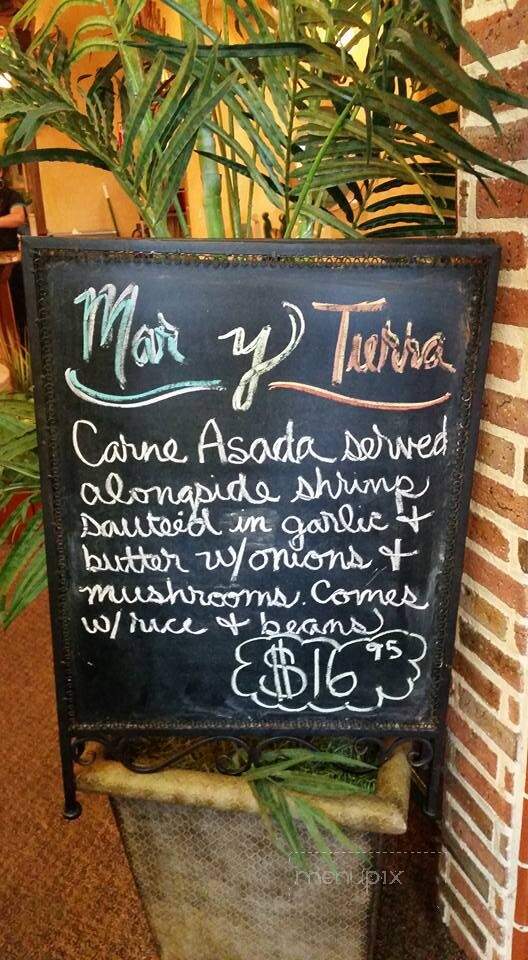 Mar y Tierra
Carne Asada served
alongside shrimp
sauteéd in garlic +
butter w/onions +
mushrooms. Comes
w/rice + beans
$16 95
menupix